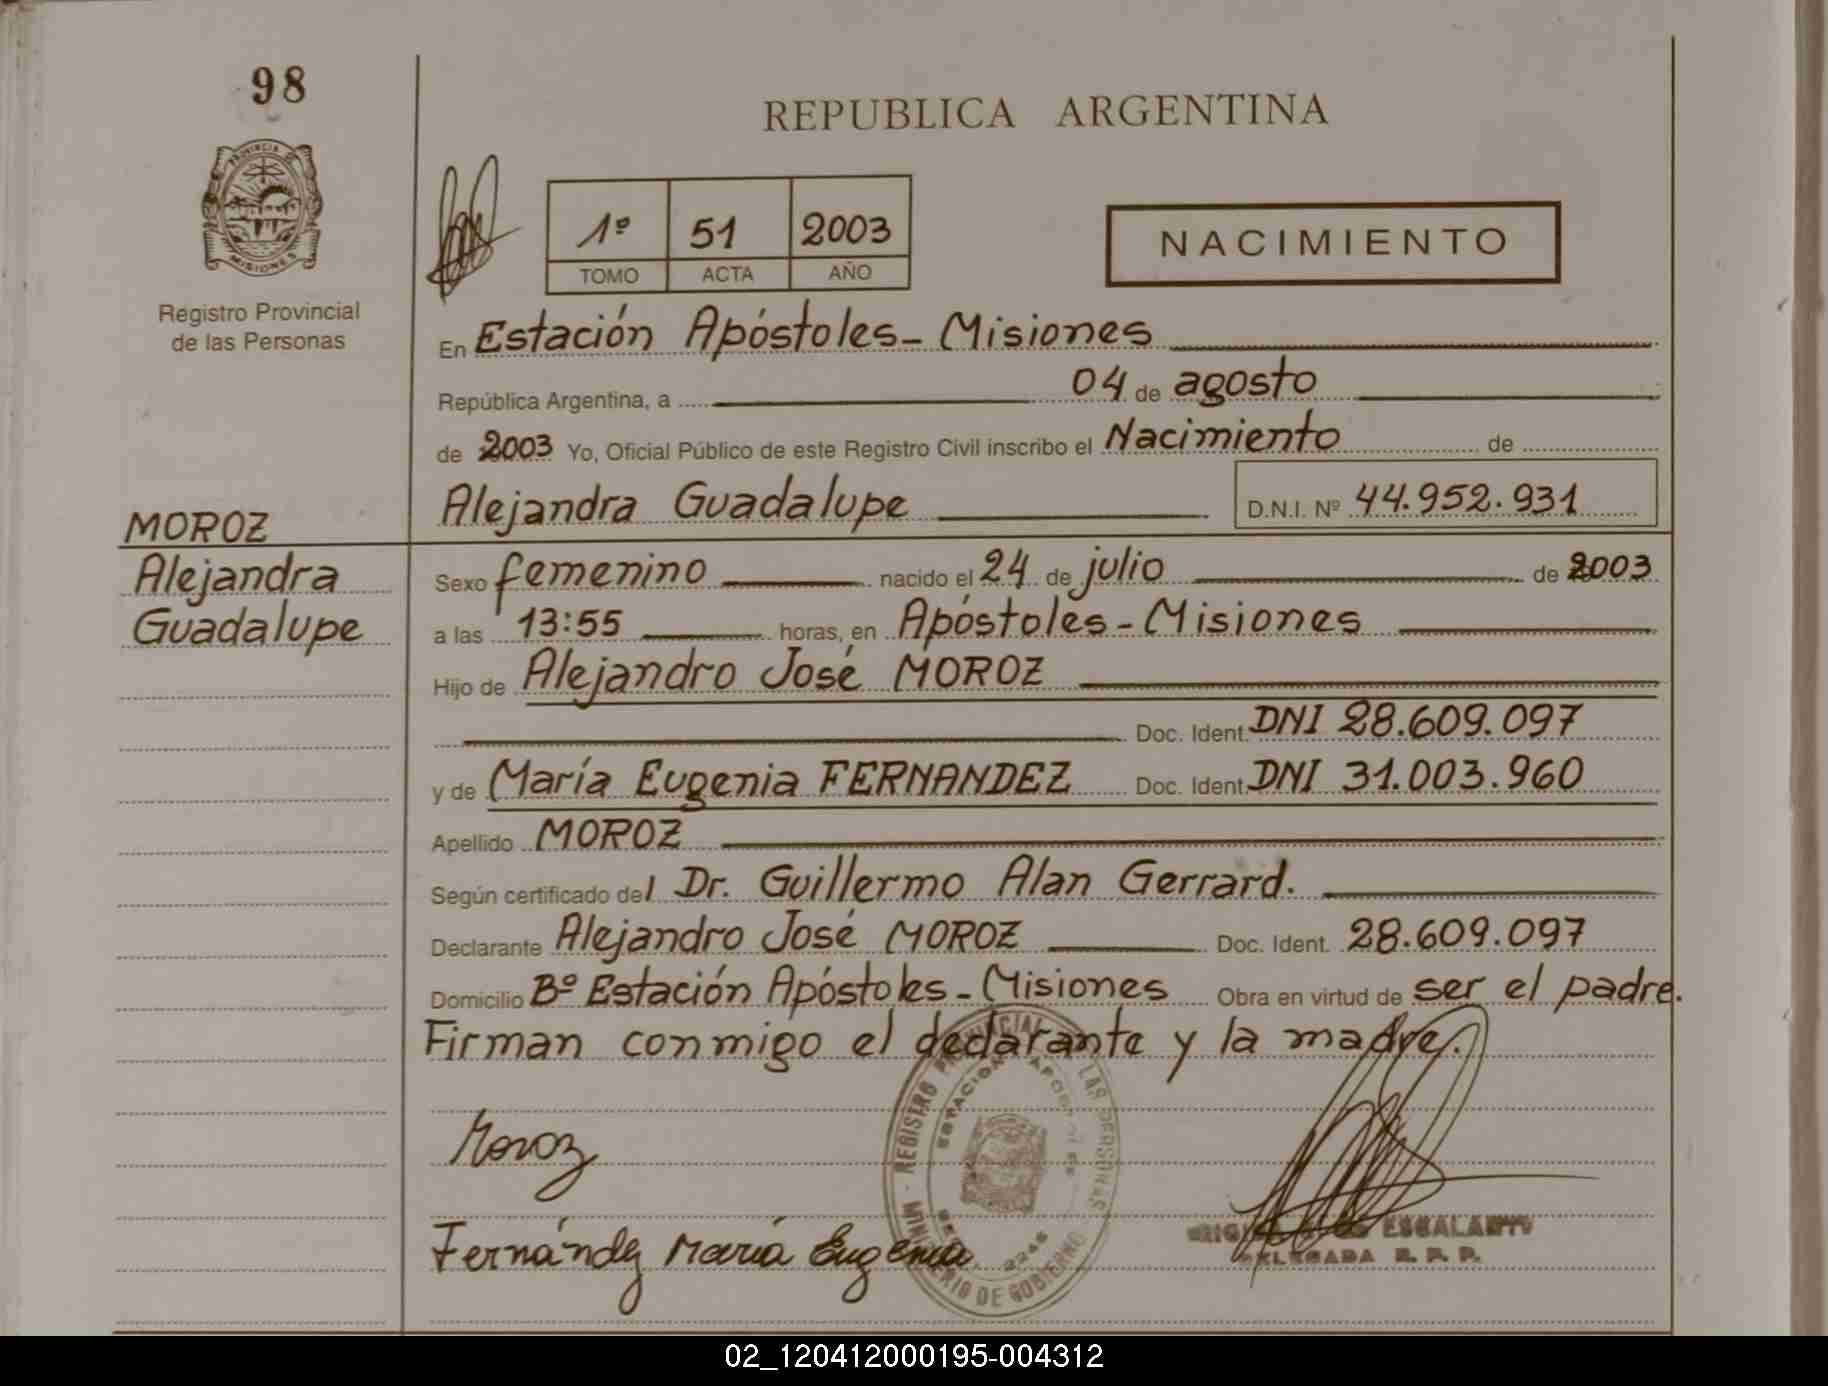 98
REPUBLICA ARGENTINA
PROVINCIA DE
MISIONES
Registro Provincial
de las Personas
1º 51 2003
TOMO ACTA AÑO
NACIMIENTO
En Estación Apóstoles - Misiones
República Argentina, a 04 de agosto
de 2003 Yo, Oficial Público de este Registro Civil inscribo el Nacimiento de
Alejandra Guadalupe D.N.I. Nº 44.952.931
MOROZ
Alejandra
Guadalupe
Sexo femenino nacido el 24 de julio de 2003
a las 13:55 horas, en Apóstoles - Misiones
Hijo de Alejandro José MOROZ
Doc. Ident. DNI 28.609.097
y de María Eugenia FERNANDEZ Doc. Ident. DNI 31.003.960
Apellido MOROZ
Según certificado del Dr. Guillermo Alan Gerrard.
Declarante Alejandro José MOROZ Doc. Ident. 28.609.097
Domicilio Bº Estación Apóstoles - Misiones Obra en virtud de ser el padre.
Firman conmigo el declarante y la madre.
MINISTERIO DE GOBIERNO - REGISTRO PROVINCIAL LAS PERSONAS
ESTACION APOSTOLES
Moroz
Fernández María Eugenia
ESCALANTE
DELEGADA R. P. P.
02_120412000195-004312